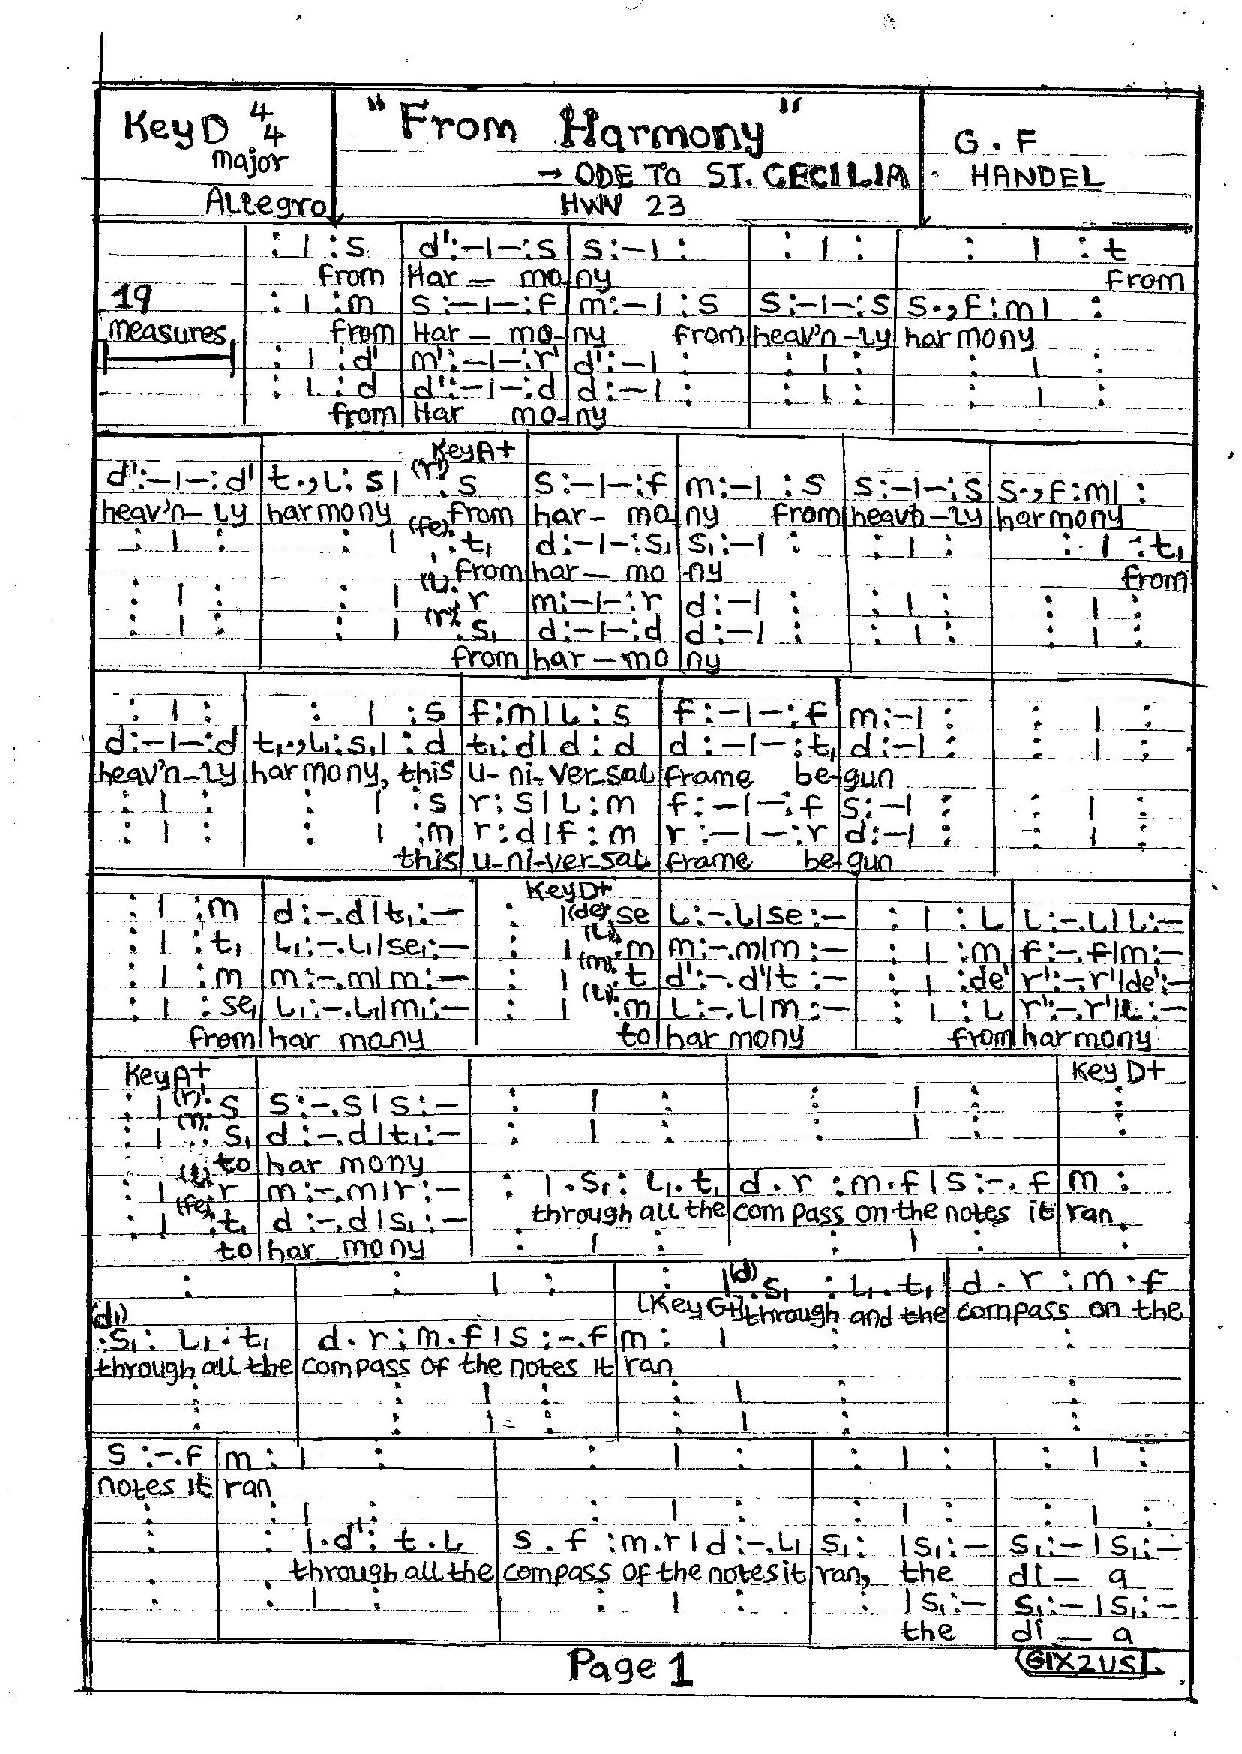 Key D 4/4 "From Harmony" G. F
major → ODE TO ST. CECILIA HANDEL
Allegro HWV 23
: | : s | d' : - | - : s | s : - | : | : | : | : | : t
from Har - mo ny from
19 : | : m | s : - | - : f | m : - | : s | s : - | - : s | s ., f : m | :
measures from Har - mo - ny from heav'n - ly harmony
: | : d' | m' : - | - : r' | d' : - | : | : | : | : | :
: | : d | d' : - | - : d | d : - | : | : | : | : | :
from Har mo - ny
Key A+
d' : - | - : d' | t ., l : s | (r') : s | s : - | - : f | m : - | : s | s : - | - : s | s ., f : m | :
heav'n - ly harmony from har - mo ny from heav'n - ly harmony
: | : | : | (fe) : t₁ | d : - | - : s₁ | s₁ : - | : | : | : | : | : t₁
from har - mo - ny from
: | : | : | (l) : r | m : - | - : r | d : - | : | : | : | : | :
: | : | : | (r') : s₁ | d : - | - : d | d : - | : | : | : | : | :
from har - mo ny
: | : | : | : s | f : m | l : s | f : - | - : f | m : - | : | : | :
d : - | - : d | t₁ ., l₁ : s₁ | : d | t₁ : d | d : d | d : - | - : t₁ | d : - | : | : | :
heav'n - ly harmony, this u - ni - ver sal frame be - gun
: | : | : | : s | r : s | l : m | f : - | - : f | s : - | : | : | :
: | : | : | : m | r : d | f : m | r : - | - : r | d : - | : | : | :
this u - ni - ver - sal frame be - gun
Key D+
: | : m | d : - . d | t₁ : - | : | (de) : se | l : - . l | se : - | : | : l | l : - . l | l : -
: | : t₁ | l₁ : - . l₁ | se₁ : - | : | (l₁) : m | m : - . m | m : - | : | : m | f : - . f | m : -
: | : m | m : - . m | m : - | : | (m) : t | d' : - . d' | t : - | : | : de' | r' : - . r' | de' : -
: | : se₁ | l₁ : - . l₁ | m₁ : - | : | (l₁) : m | l : - . l | m : - | : | : l | r' : - . r' | l : -
from har mony to har mony from har mony
Key A+ Key D+
: | (r) : s | s : - . s | s : - | : | : | : | : | :
: | (m) : s₁ | d : - . d | t₁ : - | : | : | : | : | :
to har mony
: | (l) : r | m : - . m | r : - | : | . s₁ : l₁ . t₁ | d . r : m . f | s : - . f | m :
through all the com pass on the notes it ran,
: | (fe) : t₁ | d : - . d | s₁ : - | : | : | : | : | :
to har mony
: | : | : | : | (d) : s₁ : l₁ . t₁ | d . r : m . f
(Key G+) through and the compass on the
(d₁)
: s₁ : l₁ : t₁ | d . r : m . f | s : - . f | m : | : | :
through all the compass of the notes it ran
: | : | : | : | : | :
: | : | : | : | : | :
s : - . f | m : | : | : | : | : | : | : | :
notes it ran
: | : | : | : | : | : | : | : | :
: | : | . d' : t . l | s . f : m . r | d : - . l₁ | s₁ : | s₁ : - | s₁ : - | s₁ : -
through all the compass of the notes it ran, the di - a
: | : | : | : | : | s₁ : - | s₁ : - | s₁ : -
the di - a
Page 1 GIX2USL